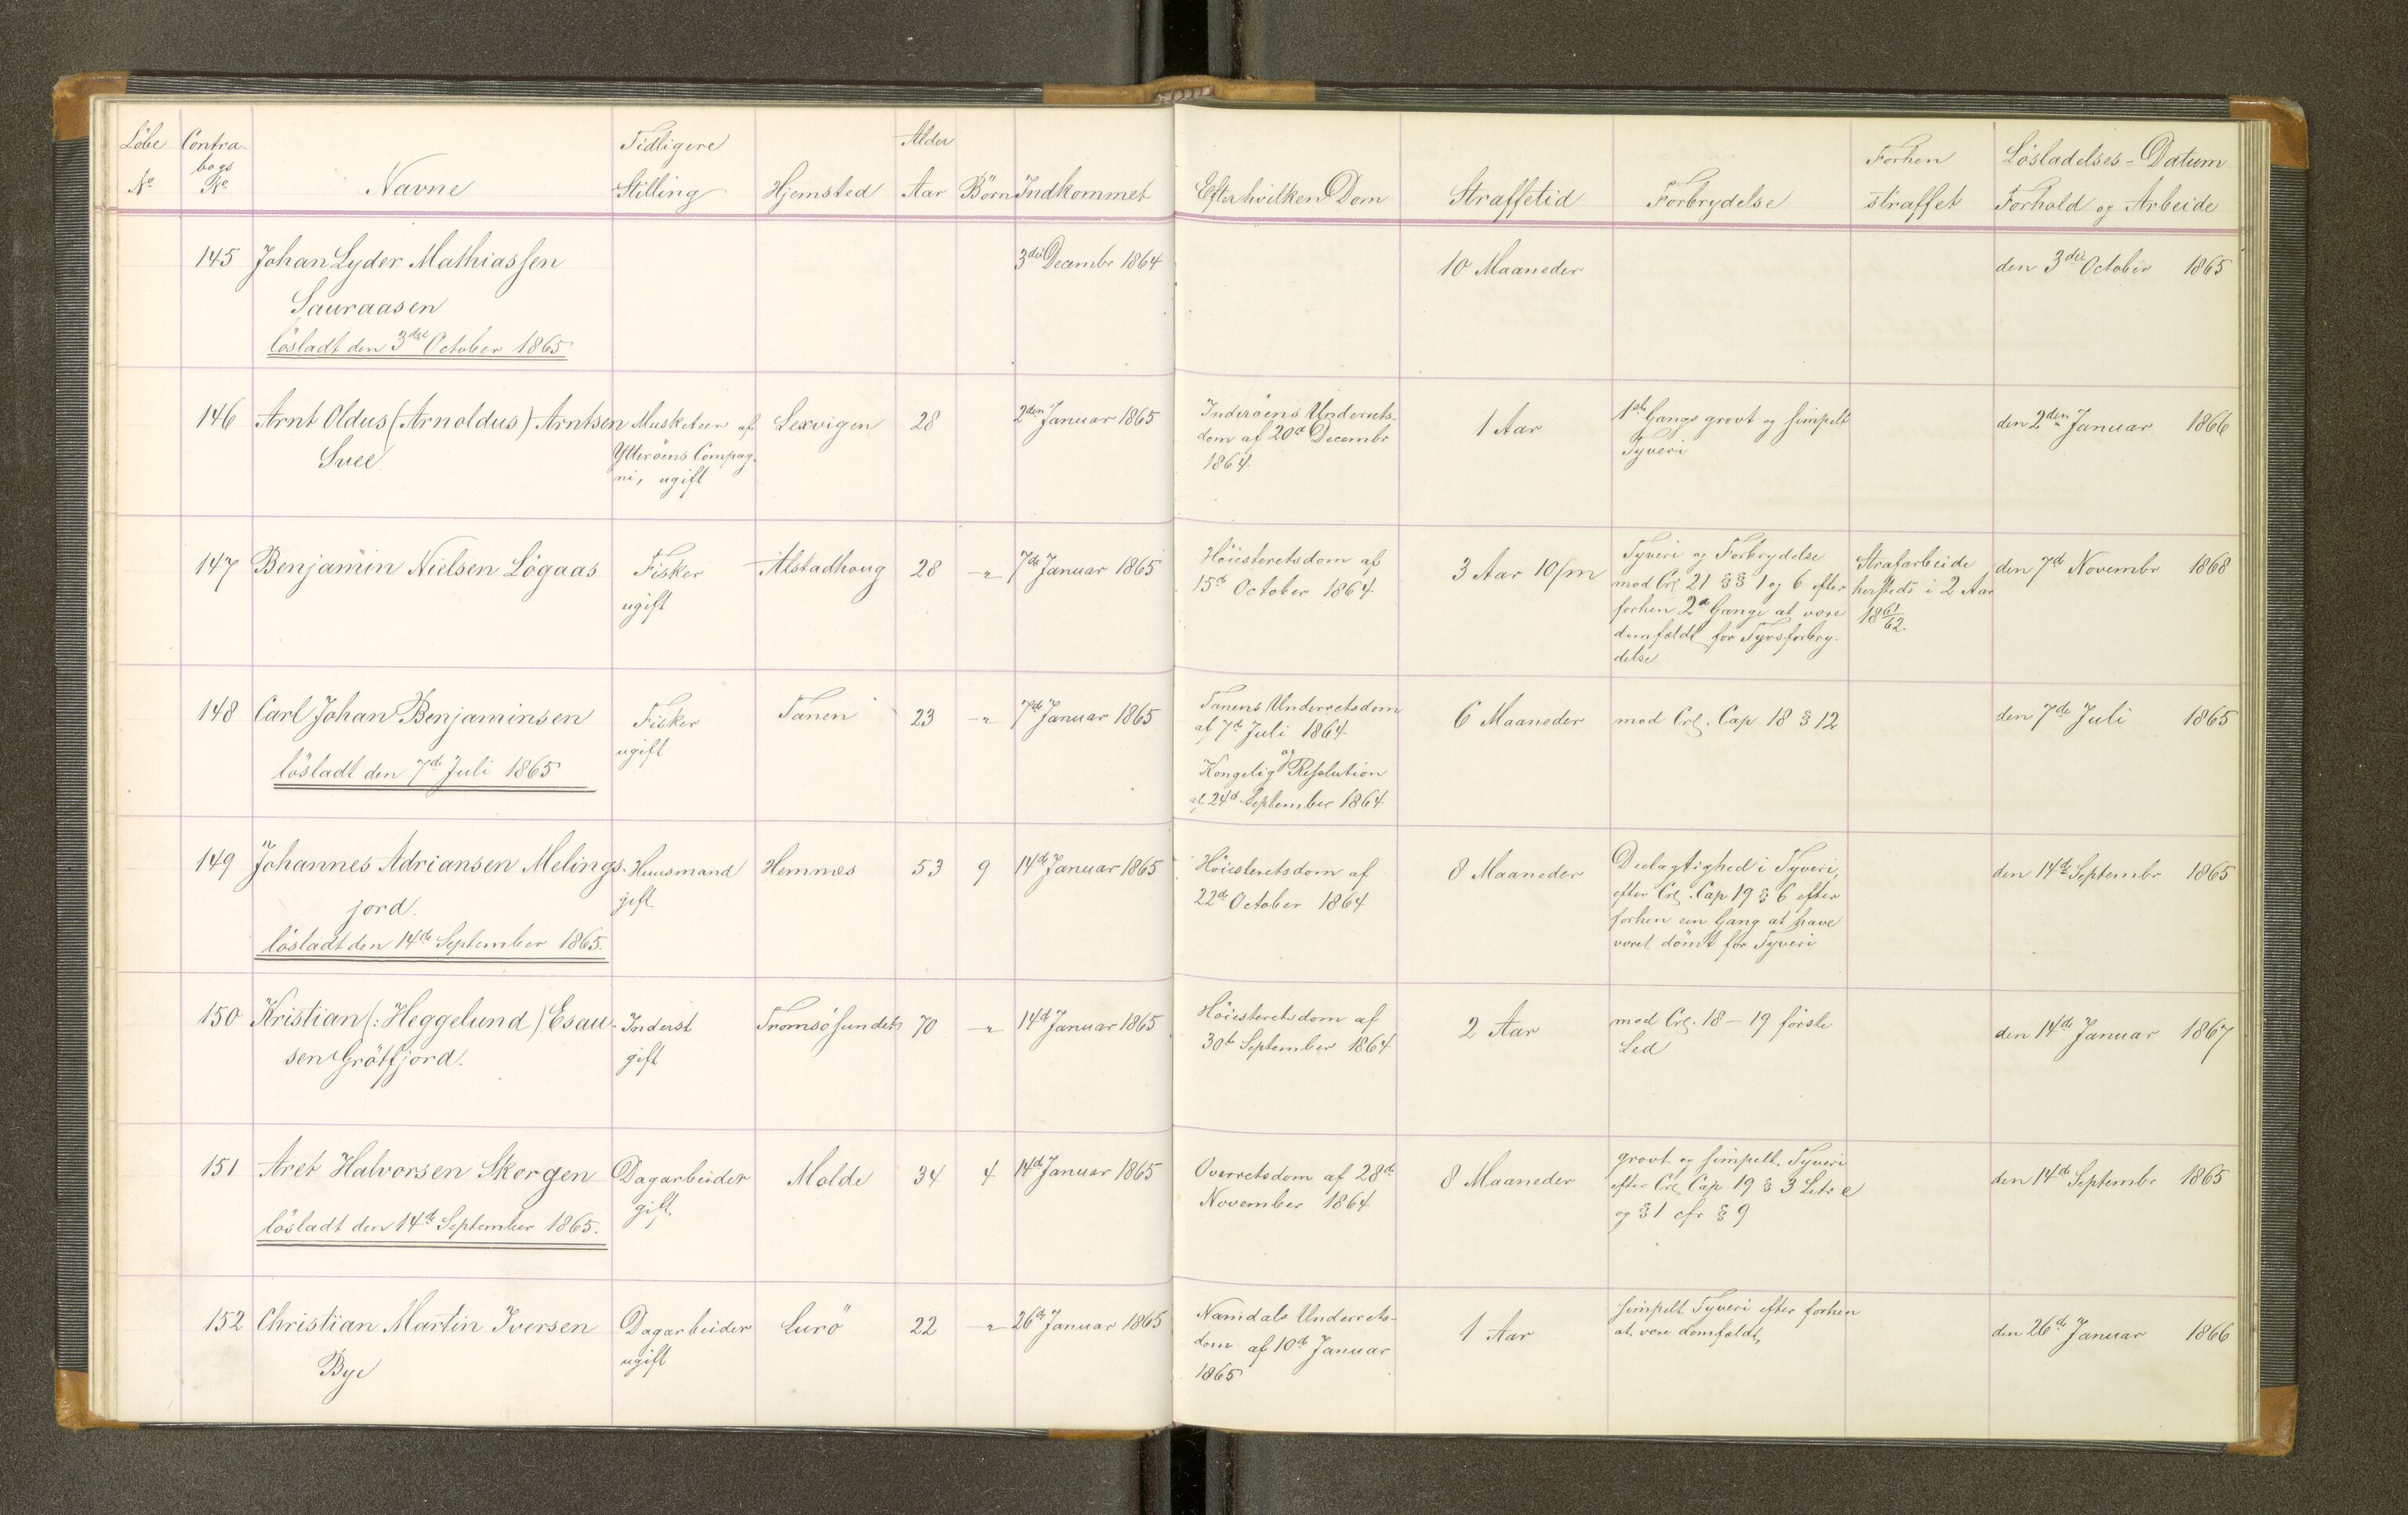 Löbe No Contrabogs No Navne Tidligere Stilling Hjemsted Alder Aar Börn Indkommet Efter hvilken Dom Straffetid Forbrydelse Forhen straffet Lösladelses-Datum Forhold og Arbeide
145 Johan Lyder Mathiassen 3die Decembr 1864 10 Maaneder den 3die October 1865
Sauraasen
lösladt den 3die October 1865
146 Arnt Oldus (Arnoldus) Arntsen Musketeer af Lexvigen 28 2den Januar 1865 Inderöens Underrets- 1 Aar 1ste Gangs grovt og simpelt den 2den Januar 1866
Svee Ytteröens Compag- dom af 20d Decembr Tyveri
ni, ugift 1864
147 Benjamin Nielsen Lögaas Fisker Alstadhoug 28 -"- 7de Januar 1865 Höiesteretsdom af 3 Aar 10/m Tyveri og Forbrydelse Strafarbeide den 7d Novembr 1868
ugift 15de October 1864 mod Crl 21 §§ 1 og 6 efter hersteds i 2 Aar
forhen 2de Gange at være 1861/62.
domfældt for Tyvsforbry-
delse
148 Carl Johan Benjaminsen Fisker Tanen 23 -"- 7de Januar 1865 Tanens Underretsdom 6 Maaneder mod Crl. Cap 18 § 12 den 7de Juli 1865
ugift af 7de Juli 1864
og
lösladt den 7de Juli 1865 Kongelig Resolution
af 24d September 1864
149 Johannes Adriansen Melings- Huusmand Hemnæs 53 9 14de Januar 1865 Höiesteretsdom af 8 Maaneder Deelagtighed i Tyveri, den 14de Septembr 1865
jord. gift 22de October 1864 efter Crl. Cap 19 § 6 efter
lösladt den 14de September 1865. forhen een Gang at have
været dömt for Tyveri
150 Kristian (: Heggelund) Esau- Inderst Tromsösundet 70 -"- 14d Januar 1865 Höiesteretsdom af 2 Aar mod Crl. 18 - 19 förste den 14de Januar 1867
sen Grötfjord. gift 30te September 1864 Led
151 Aret Halvorsen Skorgen Dagarbeider Molde 34 4 14d Januar 1865 Overretsdom af 28de 8 Maaneder grovt og simpelt Tyveri den 14de Septembr 1865
gift November 1864 efter Crl Cap 19 § 3 Litr e
lösladt den 14de September 1865. og § 1 cfr § 9
152 Christian Martin Iversen Dagarbeider Lurö 22 -"- 26de Januar 1865 Namdals Underrets- 1 Aar simpelt Tyveri efter forhen den 26de Januar 1866
Bye ugift dom af 10de Januar at være domfældt,
1865